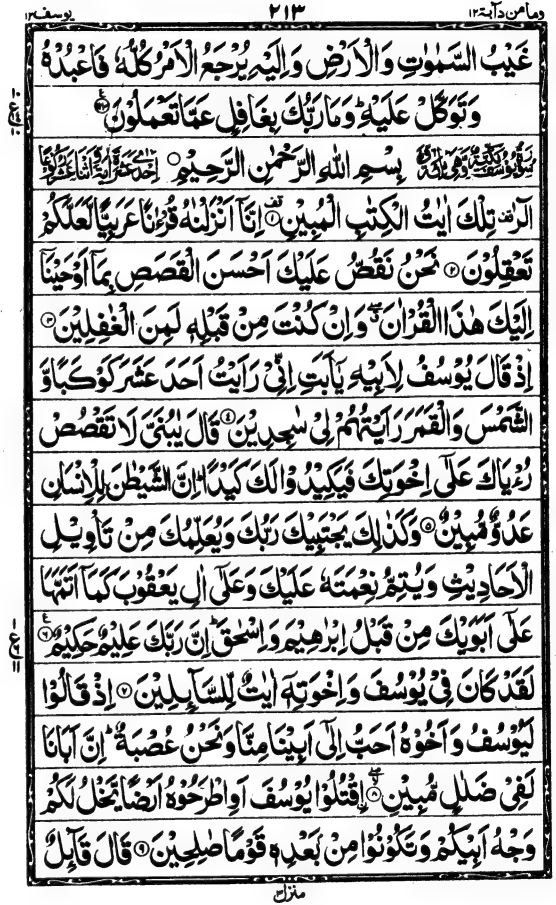 وما من دآبة ١٢ ٢١٣ يوسف ١٢
غَيْبُ السَّمٰوٰتِ وَالْاَرْضِ وَاِلَيْهِ يُرْجَعُ الْاَمْرُ كُلُّهٗ فَاعْبُدْهُ
وَتَوَكَّلْ عَلَيْهِ ؕ وَمَا رَبُّكَ بِغَافِلٍ عَمَّا تَعْمَلُوْنَ ﴿۱۲۳﴾
بِسْمِ اللّٰهِ الرَّحْمٰنِ الرَّحِيْمِ
الٓرٰ تِلْكَ اٰيٰتُ الْكِتٰبِ الْمُبِيْنِ ﴿۱﴾ اِنَّاۤ اَنْزَلْنٰهُ قُرْءٰنًا عَرَبِيًّا لَّعَلَّكُمْ
تَعْقِلُوْنَ ﴿۲﴾ نَحْنُ نَقُصُّ عَلَيْكَ اَحْسَنَ الْقَصَصِ بِمَاۤ اَوْحَيْنَاۤ
اِلَيْكَ هٰذَا الْقُرْاٰنَ وَاِنْ كُنْتَ مِنْ قَبْلِهٖ لَمِنَ الْغٰفِلِيْنَ ﴿۳﴾
اِذْ قَالَ يُوْسُفُ لِاَبِيْهِ يٰۤاَبَتِ اِنِّيْ رَاَيْتُ اَحَدَ عَشَرَ كَوْكَبًا وَّ
الشَّمْسَ وَالْقَمَرَ رَاَيْتُهُمْ لِيْ سٰجِدِيْنَ ﴿۴﴾ قَالَ يٰبُنَيَّ لَا تَقْصُصْ
رُءْيَاكَ عَلٰۤى اِخْوَتِكَ فَيَكِيْدُوْا لَكَ كَيْدًا ؕ اِنَّ الشَّيْطٰنَ لِلْاِنْسَانِ
عَدُوٌّ مُّبِيْنٌ ﴿۵﴾ وَكَذٰلِكَ يَجْتَبِيْكَ رَبُّكَ وَيُعَلِّمُكَ مِنْ تَاْوِيْلِ
الْاَحَادِيْثِ وَيُتِمُّ نِعْمَتَهٗ عَلَيْكَ وَعَلٰۤى اٰلِ يَعْقُوْبَ كَمَاۤ اَتَمَّهَا
عَلٰۤى اَبَوَيْكَ مِنْ قَبْلُ اِبْرٰهِيْمَ وَاِسْحٰقَ ؕ اِنَّ رَبَّكَ عَلِيْمٌ حَكِيْمٌ ﴿۶﴾
لَقَدْ كَانَ فِيْ يُوْسُفَ وَاِخْوَتِهٖۤ اٰيٰتٌ لِّلسَّآئِلِيْنَ ﴿۷﴾ اِذْ قَالُوْا
لَيُوْسُفُ وَاَخُوْهُ اَحَبُّ اِلٰۤى اَبِيْنَا مِنَّا وَنَحْنُ عُصْبَةٌ ؕ اِنَّ اَبَانَا
لَفِيْ ضَلٰلٍ مُّبِيْنِ ﴿۸﴾ اِۨقْتُلُوْا يُوْسُفَ اَوِ اطْرَحُوْهُ اَرْضًا يَّخْلُ لَكُمْ
وَجْهُ اَبِيْكُمْ وَتَكُوْنُوْا مِنْۢ بَعْدِهٖ قَوْمًا صٰلِحِيْنَ ﴿۹﴾ قَالَ قَآئِلٌ
منزل ۳